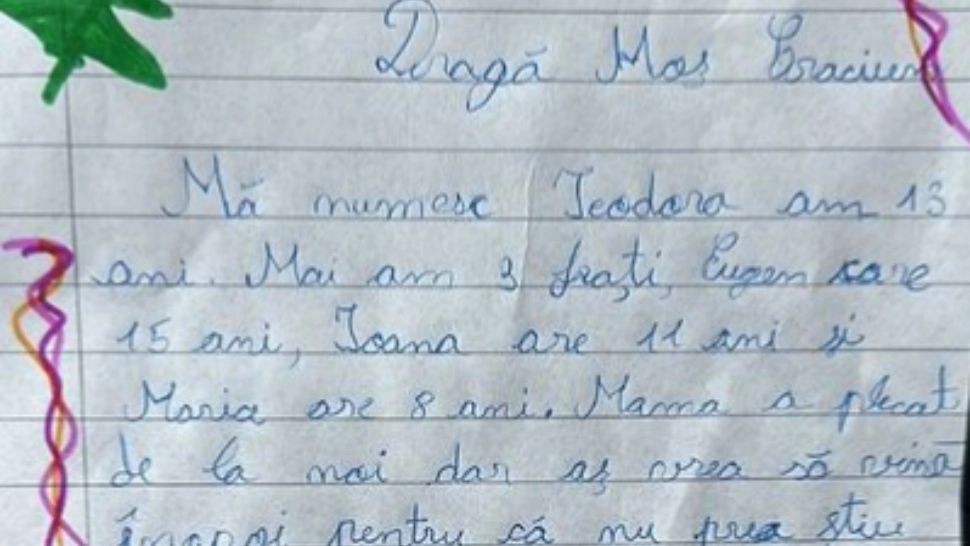 Dragă Moș Craciun
Mă numesc Teodora am 13
ani. Mai am 3 frați, Eugen care
15 ani, Ioana are 11 ani și
Maria are 8 ani. Mama a plecat
de la noi dar aș vrea să vină
înapoi pentru că nu prea știu